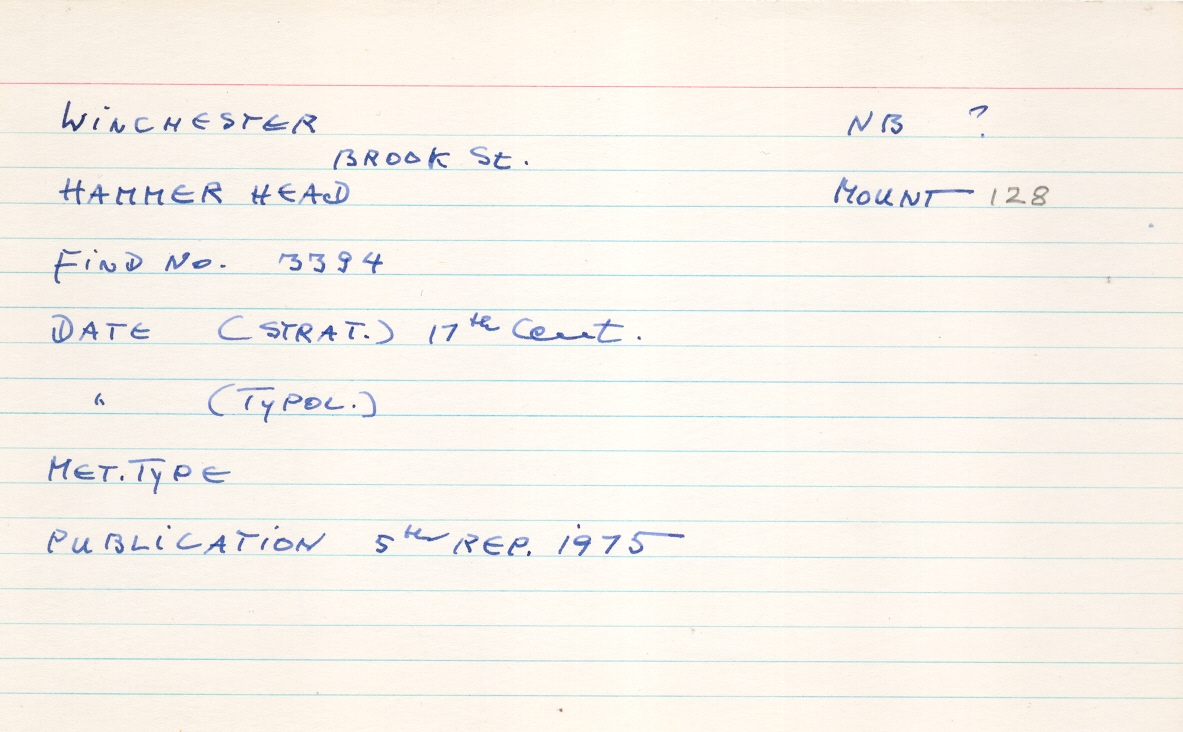 WINCHESTER NB ?
BROOK St.
HAMMER HEAD MOUNT 128
FIND No. 3394
DATE (STRAT.) 17th Cent.
" (TYPOL.)
MET. TYPE
PUBLICATION 5th REP. 1975